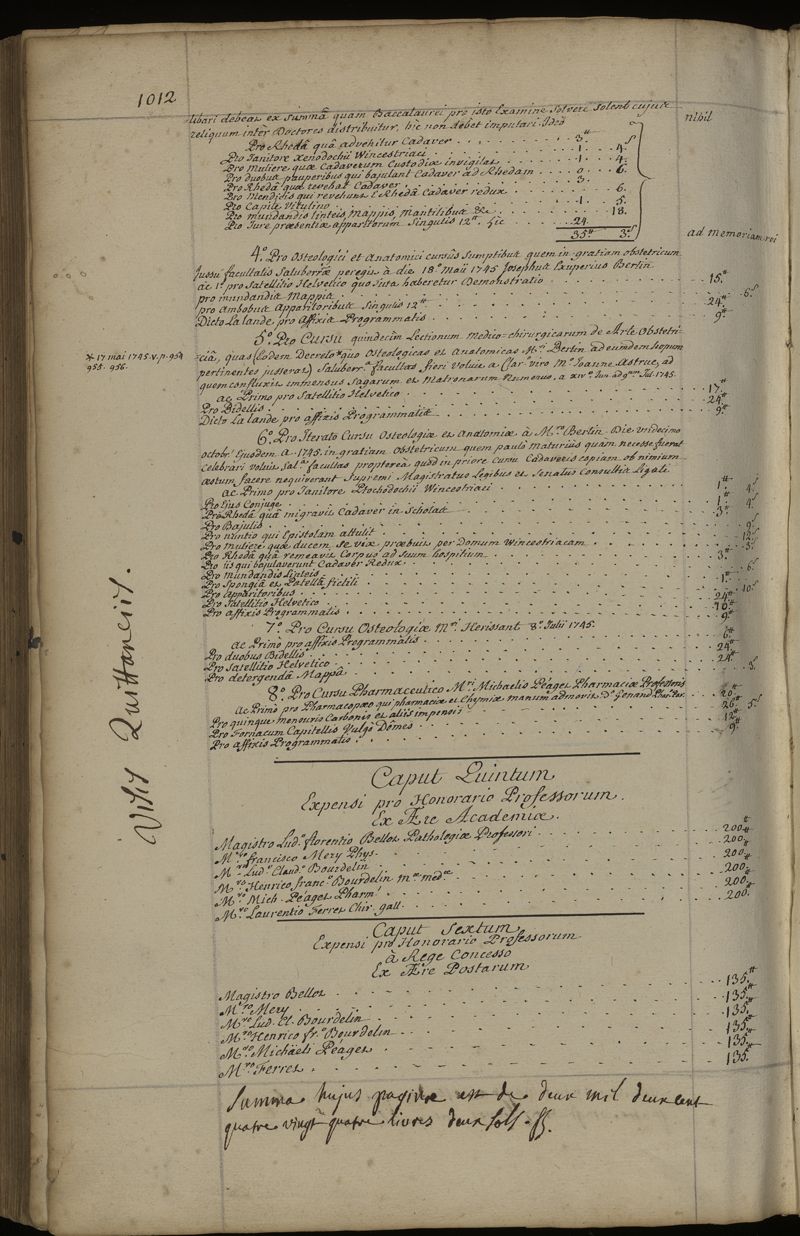 1012
libari debeat ex summâ quam Baccalaurei pro isto Examine solvere solent cujus
reliquum inter Doctores distribuitur, hic non debet imputari. Ideo nihil
Pro Rhedâ quâ advehitur Cadaver . . . 3.tt
Pro Janitore Xenodochii Wincestriaci . . . 1. 4.s
Pro Muliere quæ Cadaverum Custodiæ invigilat . . . 1. 4.
Pro duobus pauperibus qui bajulant Cadaver ad Rhedam . . . 0. 6.
Pro Rhedâ quæ revehit Cadaver . . . 3.
Pro Mendicis qui revehunt è Rhedâ Cadaver redux . . . 6.
Pro Capite Vitulino . . . 1. 5.
Pro mundandis linteis, Mappis, Mantilibus &c . . . 18.
Pro Jure præsentiæ apparitorum Singulis 12tt. hic . . . 24.
35tt 3.s ad memoriam rei
4.o Pro Osteologici et Anatomici cursûs Sumptibus quem in gratiam obstetricum
Jussu facultatis Saluberræ peregit à die 18.a Maii 1745 Josephus Exuperius Bertin
ac 1.o pro Satellitio Helvetico quo tuta haberetur Demonstratio . . . 15.tt
pro mundandis Mappis . . . 6.s
pro Ambobus Apparitoribus Singulis 12tt . . . 24tt
Dicto La lande, pro Affixis Programmatis . . . 9tt
5.o Pro Cursu quindecim Lectionum Medico-chirurgicarum de Arte Obstetri-
* 17 mai 1745. v. p. 954
955. 956.
ciâ, quas (Eodem Decreto * quo Osteologicas et Anatomicas M.ri Bertin ad eumdem scopum
pertinentes jusserat) Saluberr.a facultas fieri voluit a Clar.o viro M.o Joanne Astruc, ad
quem confluxit immensus Sagarum et Matronarum Numerus, a XIV.a Jun. ad 9.am Jul. 1745.
ac Primo pro Satellitio Helvetico . . . 17.tt
Pro Bidellis . . . 24tt
Dicto La lande pro affixis Programmatis . . . 9tt
6.o Pro Iterato Cursu Osteologiæ et Anatomiæ à M.ro Bertin Die undecimo
octobr. Ejusdem A. 1745. in gratiam Obstetricum quem paulò maturiùs quàm necesse fuerat
Celebrari voluit Sal.a facultas propterea quòd in priore Cursu Cadaveris copiam ob nimium
æstum facere nequiverant Supremi Magistratus Legibus et Senatus Consultis Ligati.
ac Primo pro Janitore Ptochodochii Wincestriaci . . . 1.tt 4.s
Pro Ejus Conjuge . . . 1.tt 4.s
Pro Rhedâ quâ migravit Cadaver in Scholas . . . 3.tt
Pro Bajulis . . . 9.s
Pro nuntio qui Epistolam attulit . . . 12.s
Pro Muliere quæ ducem se viæ præbuit per Domum Wincestriacam . . . 3.s
Pro Rhedâ quâ remeavit Corpus ad suum hospitium . . . 3.tt
Pro iis qui bajulaverunt Cadaver Redux . . . 6.s
Pro Mundandis Linteis . . . 1.tt
Pro Spongiâ et Patellâ fictili . . . 10.s
Pro Apparitoribus . . . 24tt
Pro Satellitio Helvetico . . . 10tt
Pro affixis Programmatis . . . 9tt
7.o Pro Cursu Osteologiæ M.ri Herissant 8.a Julii 1745.
ac Primo pro affixis Programmatis . . . 6tt
Pro duobus Bidellis . . . 24tt
Pro Satellitio Helvetico . . . 24tt
Pro detergendâ Mappâ
8.o Pro Cursu Pharmaceutico M.ri Michaelis Péaget Pharmaciæ Professoris
ac Primo pro Pharmacopæo qui pharmaciæ et Chymiæ manum admovit . . . 20tt
Pro quinque mensuris Carbonis et aliis impensis . . . 26tt 5.s
Pro Fornacum Capitellis Vulgò Domes . . . 12tt
Pro affixis Programmatis . . . 9tt
Visis Quittanciis.
Caput Quintum
Expensi pro Honorario Professorum.
Ex Ære Academiæ.
Magistro Lud.o florentio Bellot Pathologiæ Professori . . . 200tt
M.ro Francisco Mery Phys. . . . 200tt
M.ro Lud.o Claud.o Bourdelin . . . 200tt
M.ro Henrico franc.o Bourdelin m.æ med.æ . . . 200tt
M.ro Mich. Péaget Pharm. . . . 200tt
M.ro Laurentio Ferret Chir. gall. . . . 200.
Caput Sextum
Expensi pro Honorario Professorum
à Rege Concesso
Ex Ære Postarum
Magistro Bellot . . . 135.tt
M.ro Mery . . . 135.tt
M.ro Lud. Cl. Bourdelin . . . 135.tt
M.ro Henrico fr.o Bourdelin . . . 135.tt
M.ro Michäeli Péaget . . . 135.tt
M.ro Ferret . . . 135.
Summa hujus paginæ est de deux mil deux cent
quatre vingt quatre livres deux sols